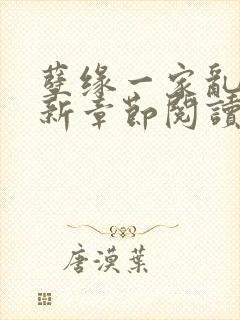 孽缘一家亂
新章節閱讀
唐漠葉